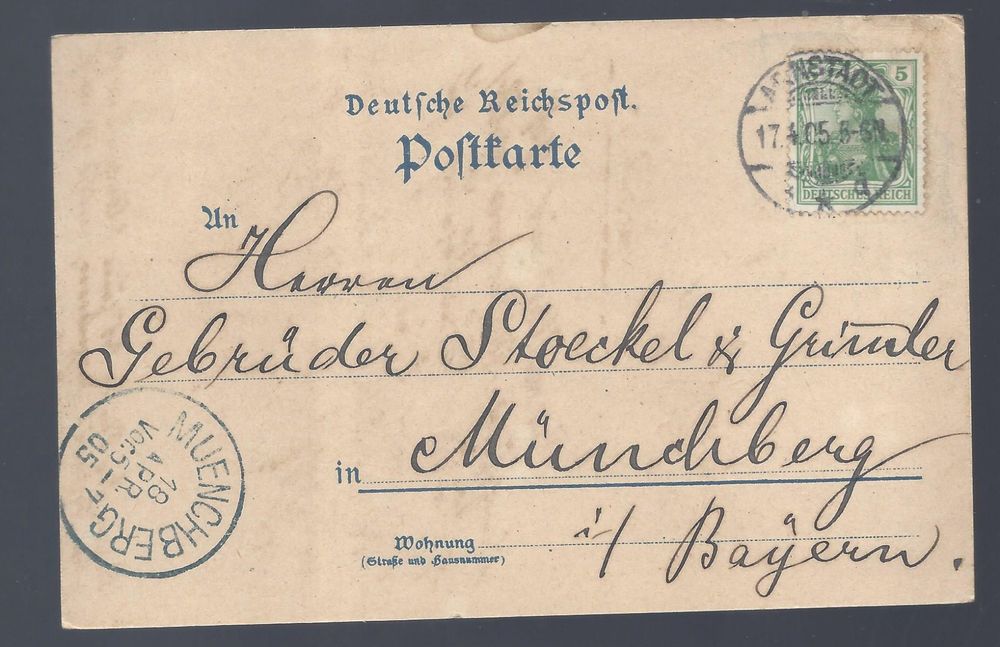 Deutsche Reichspost.
Postkarte
5
ARNSTADT
17.4.05. 6-7N
* d
DEUTSCHES REICH
An
Herren
Gebrüder Stoeckel & Grimler
in Münchberg
Wohnung
(Straße und Hausnummer)
i/ Bayern.
MUENCHBERG
18
APR
Vor. 5-7
05